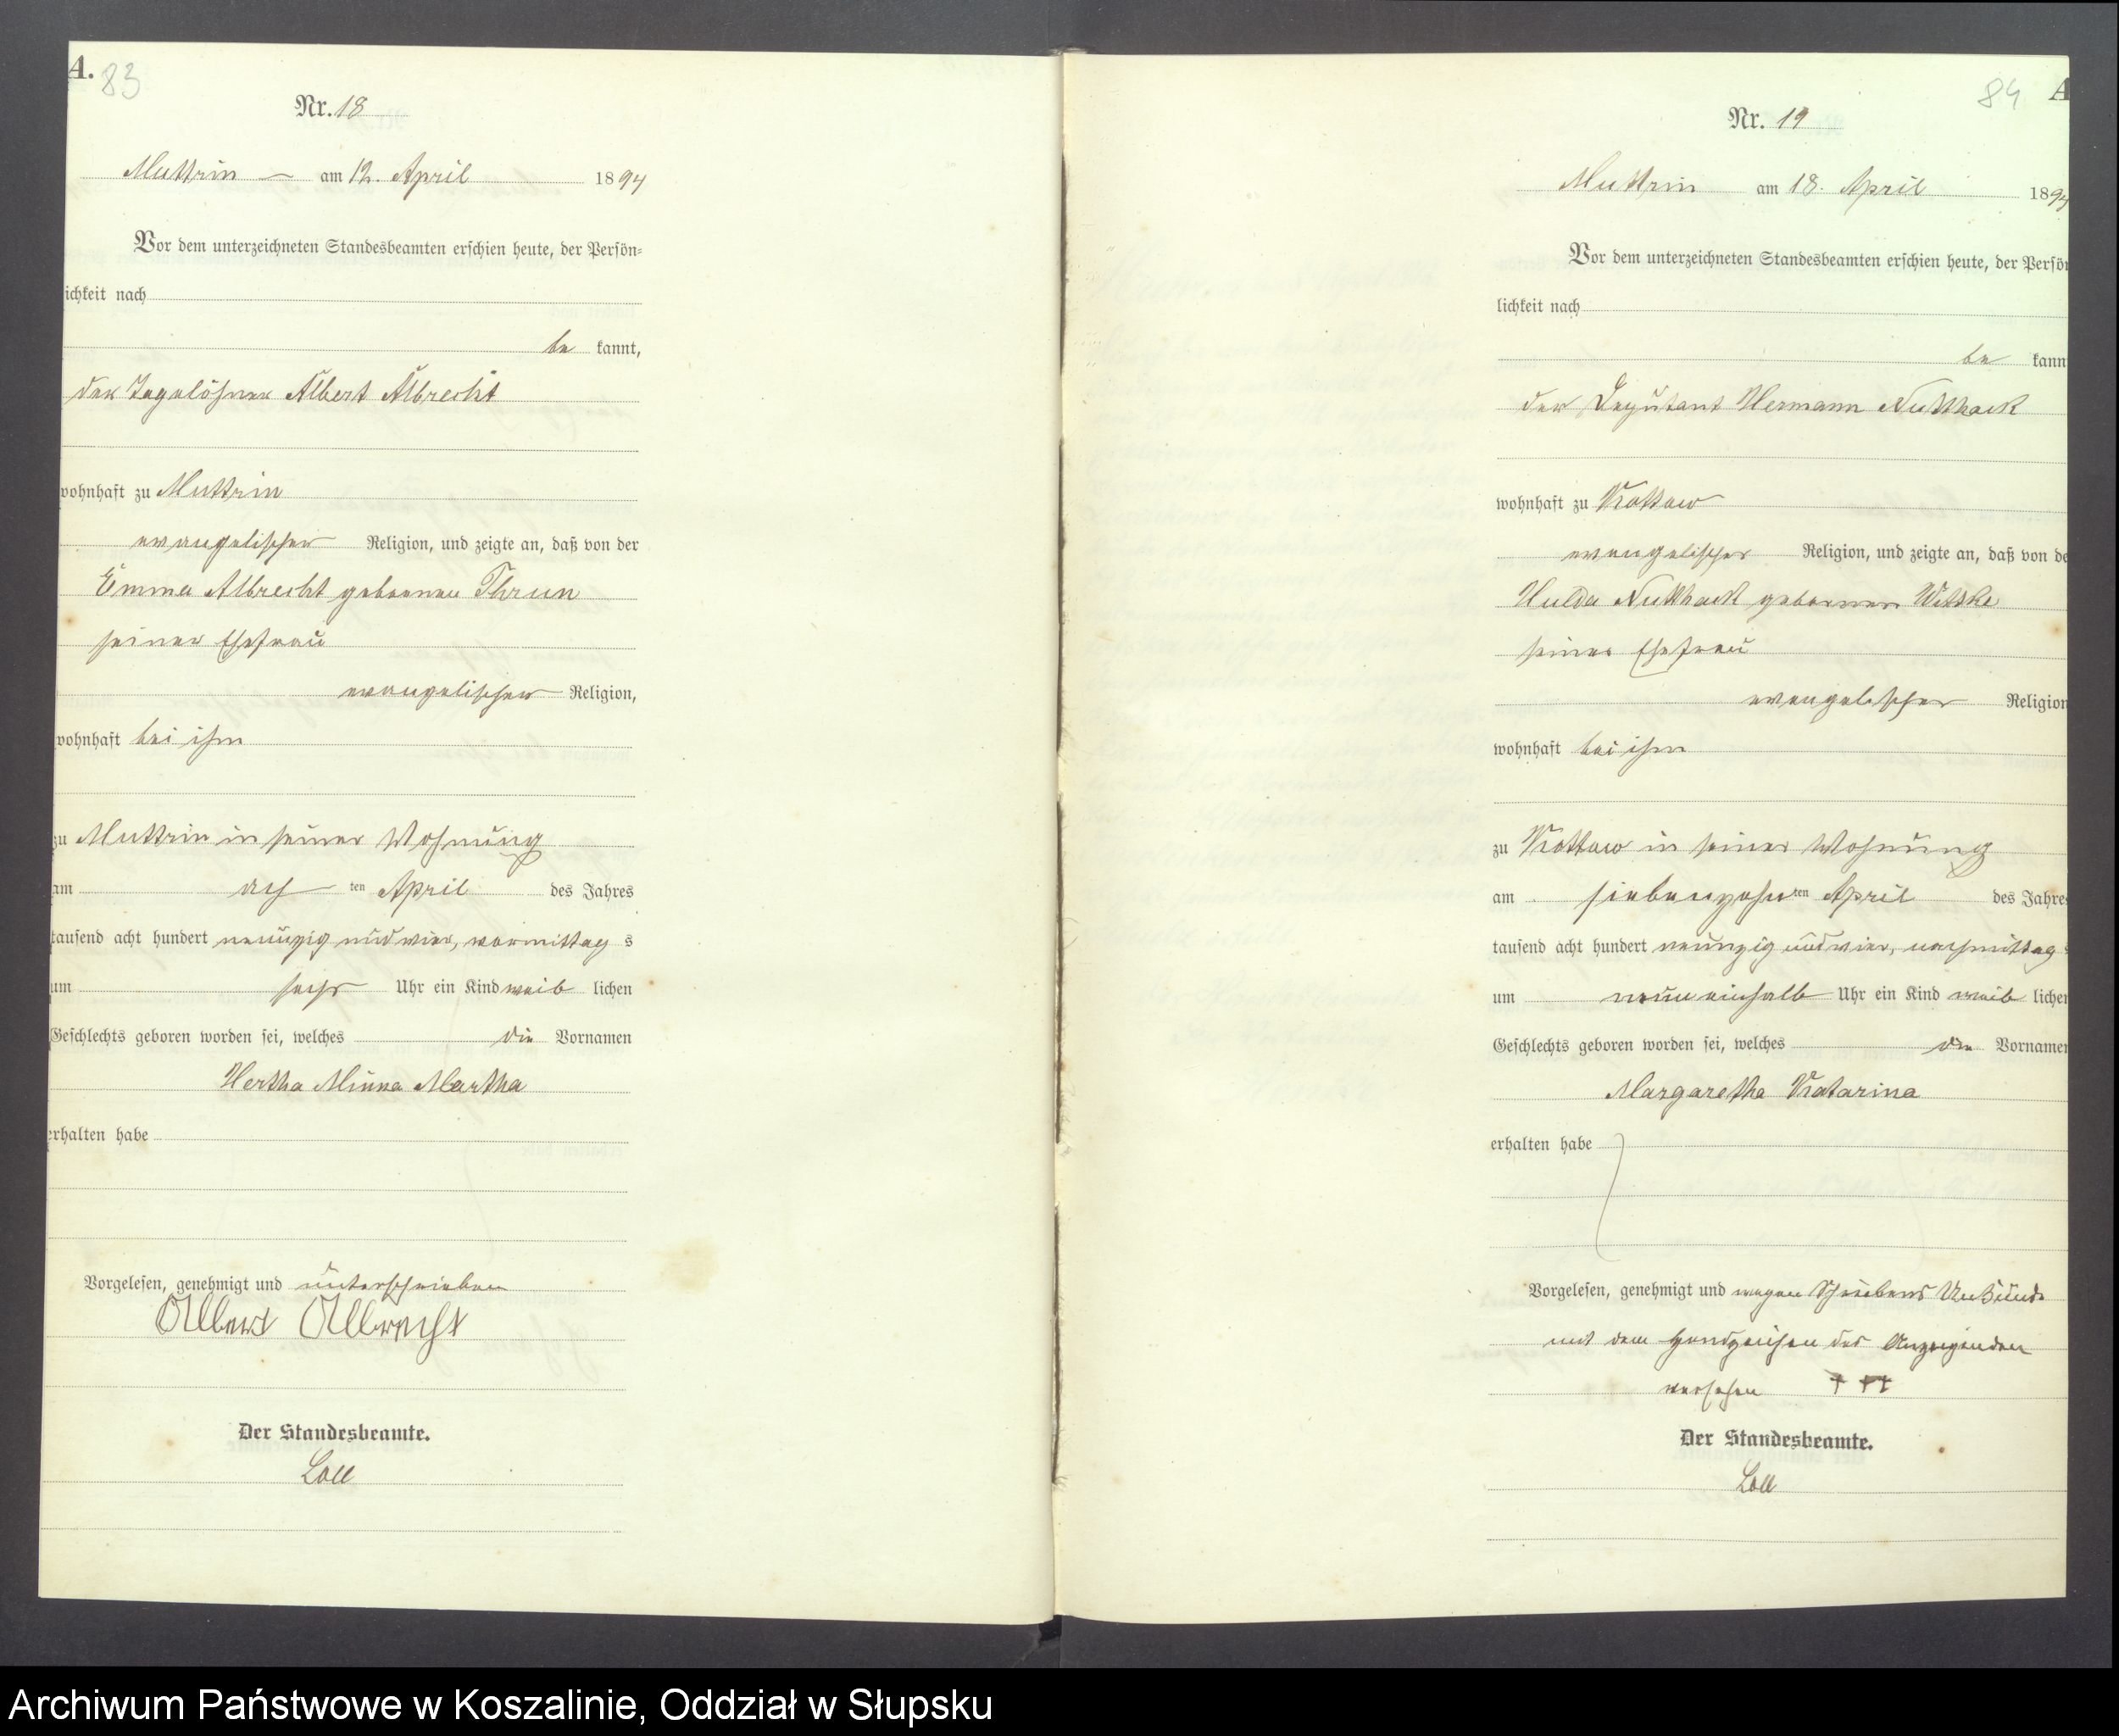 A. 83
Nr. 18
Muttrin am 12. April 1894
Vor dem unterzeichneten Standesbeamten erschien heute, der Persön-
lichkeit nach
be kannt,
der Tagelöhner Albert Albrecht
wohnhaft zu Muttrin
evangelischer Religion, und zeigte an, daß von der
Emma Albrecht geborenen Thrun
seiner Ehefrau
evangelischer Religion,
wohnhaft bei ihm
zu Muttrin in seiner Wohnung
am ach ten April des Jahres
tausend acht hundert neunzig und vier, vormittag s
um sechs Uhr ein Kind weib lichen
Geschlechts geboren worden sei, welches die Vornamen
Hertha Minna Martha
erhalten habe
Vorgelesen, genehmigt und unterschrieben
Albert Albrecht
Der Standesbeamte.
Loll
84 A
Nr. 19
Muttrin am 18. April 1894
Vor dem unterzeichneten Standesbeamten erschien heute, der Persön
lichkeit nach
be kann
der Deputant Hermann Nutthack
wohnhaft zu Kottow
evangelischer Religion, und zeigte an, daß von de
Hulda Nutthack geborenen Witzke
seiner Ehefrau
evangelischer Religion
wohnhaft bei ihm
zu Kottow in seiner Wohnung
am siebenzehn ten April des Jahres
tausend acht hundert neunzig und vier, nachmittag
um neun einhalb Uhr ein Kind weib lichen
Geschlechts geboren worden sei, welches die Vornamen
Margarethe Katarina
erhalten habe
Vorgelesen, genehmigt und wegen Schreibens Unkunde
mit dem Handzeichen des Anzeigenden
versehen + ++
Der Standesbeamte.
Loll
Archiwum Państwowe w Koszalinie, Oddział w Słupsku